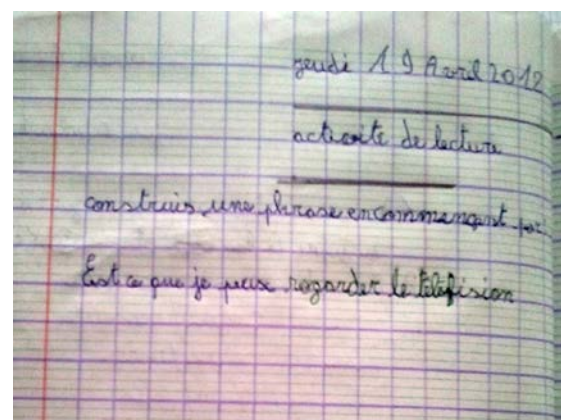 jeudi 19 Avril 2012
activite de lecture
construis une phrase en commençant par
Est ce que je peux regarder le teléfision